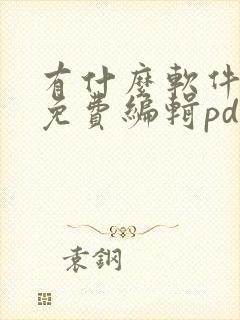 有什麼軟件
免費編輯pd
袁鋼